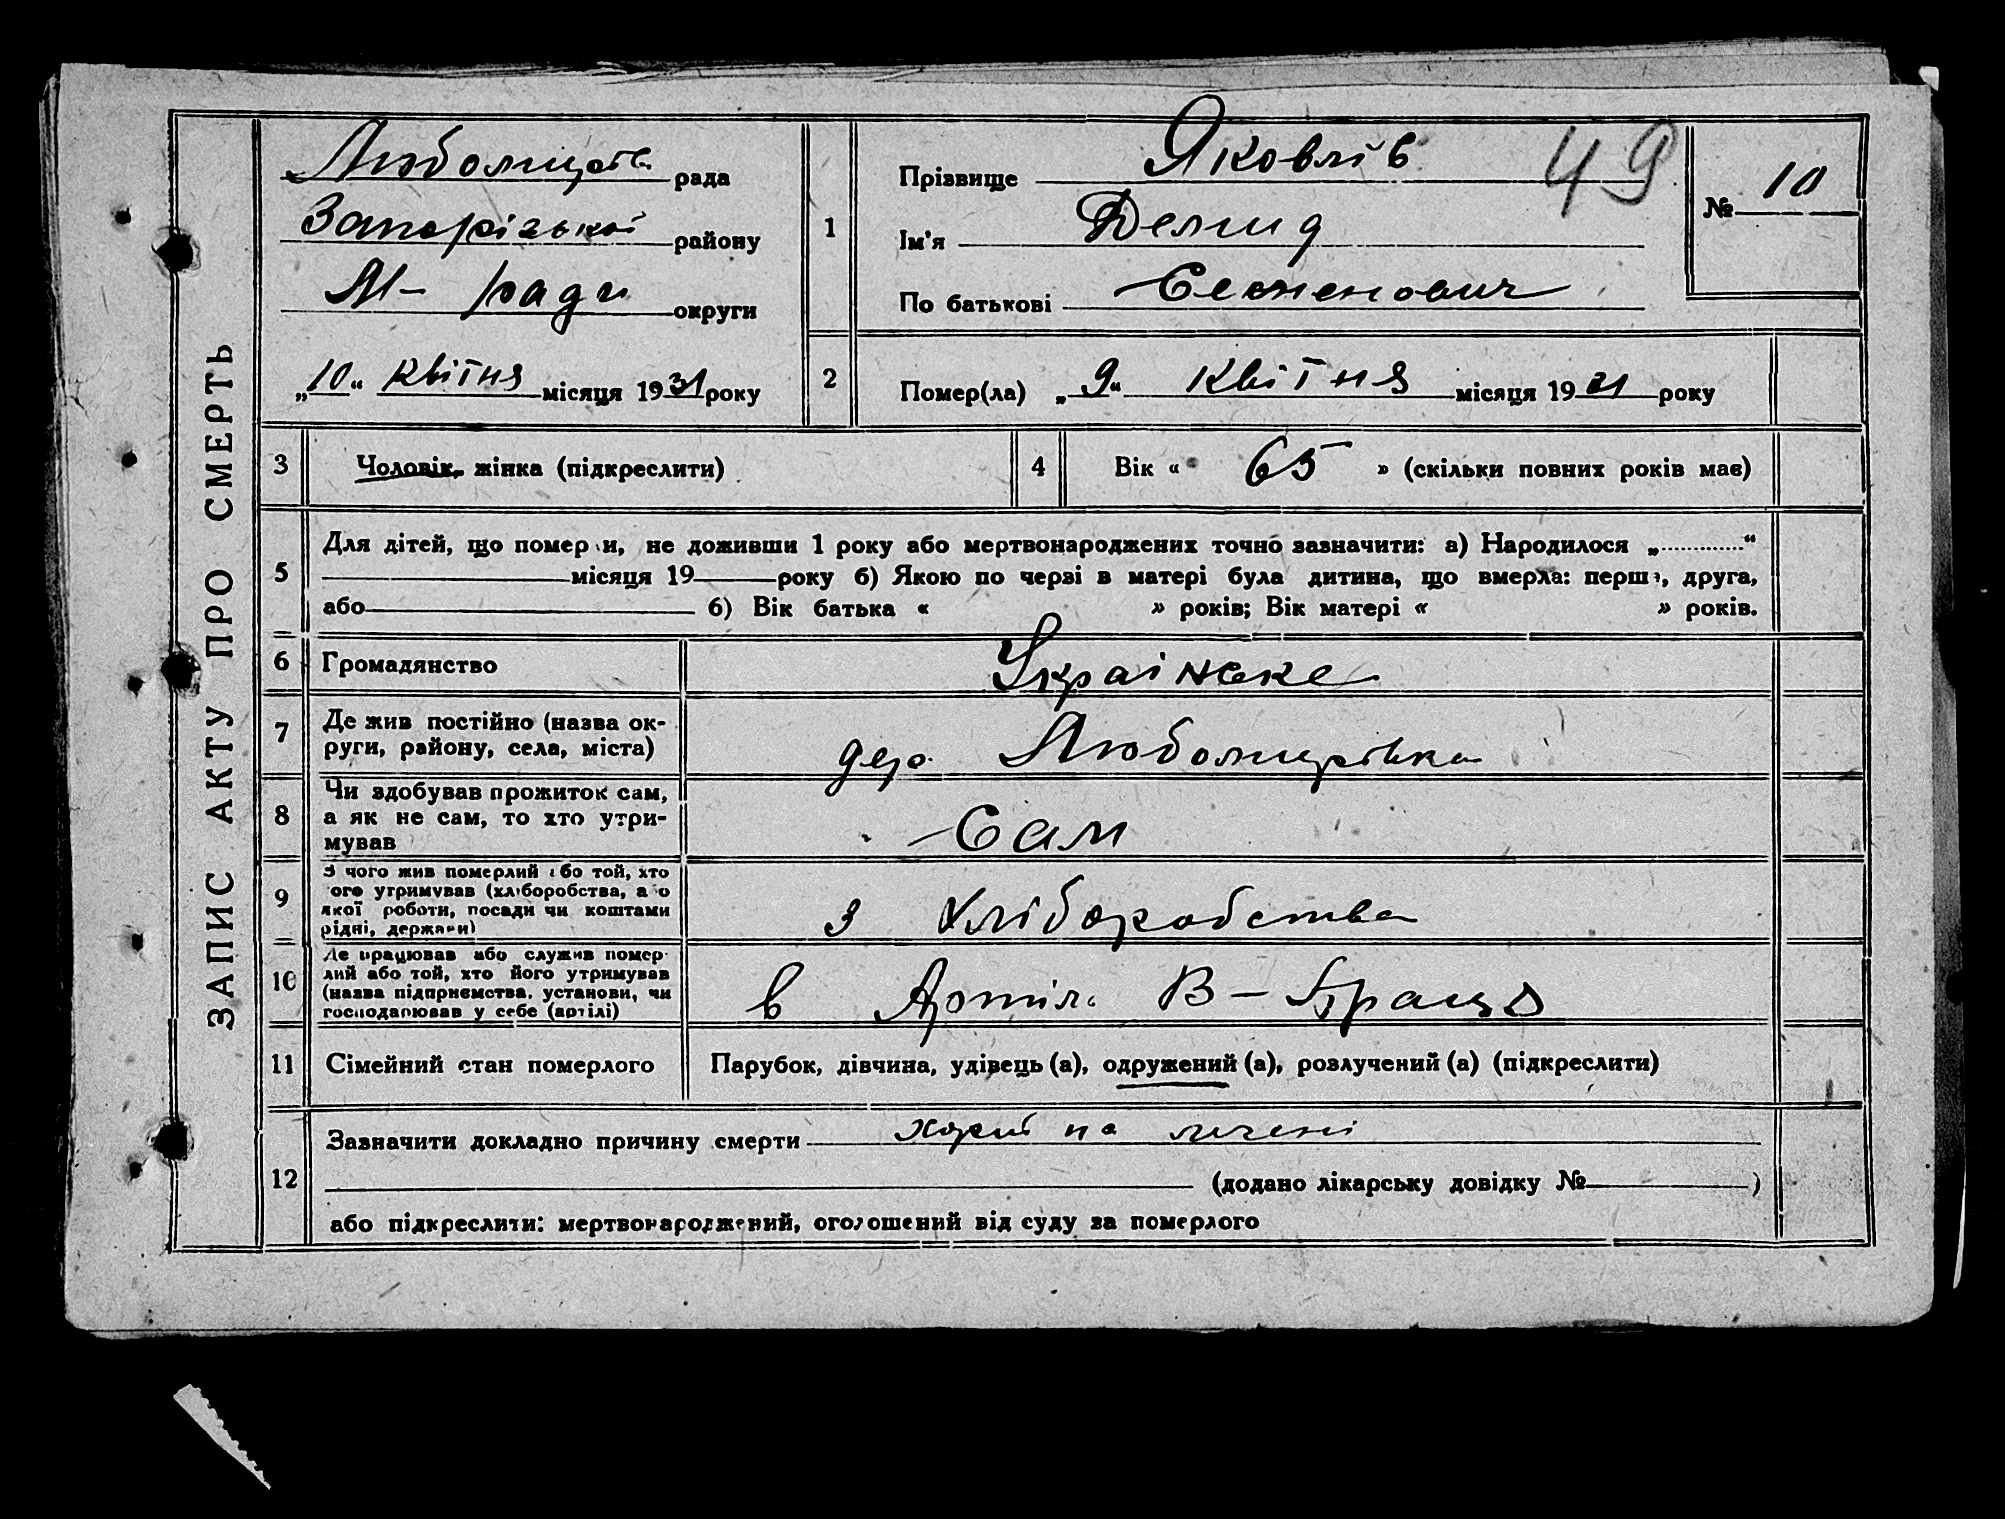 ЗАПИС АКТУ ПРО СМЕРТЬ
рада
Запорізької району
М- ради округи
„10“ квітня місяця 1931 року
1
Прізвище Яковлів
49
Ім'я Демид
По батькові Семенович
№ 10
2
Помер(ла) „9“ квітня місяця 1931 року
3 Чоловік, жінка (підкреслити)
4 Вік « 65 » (скільки повних років має)
5
Для дітей, що померли, не доживши 1 року або мертвонароджених точно зазначити: а) Народилося „............“
місяця 19 року б) Якою по черзі в матері була дитина, що вмерла: перша, друга,
або б) Вік батька « » років; Вік матері « » років.
6 Громадянство Українське
7 Де жив постійно (назва ок-
руги, району, села, міста)
дер. Любомирівка
8 Чи здобував прожиток сам,
а як не сам, то хто утри-
мував
Сам
9 З чого жив померлий або той, хто
його утримував (хліборобства, або
якої роботи, посади чи коштами
рідні, держави)
з хліборобства
10 Де працював або служив помер-
лий або той, хто його утримував
(назва підприємства, установи, чи
господарював у себе (артілі)
в Артіл. В-Праця
11 Сімейний стан померлого Парубок, дівчина, удівець (а), одружений (а), розлучений (а) (підкреслити)
12
Зазначити докладно причину смерти хорий на печені
(додано лікарську довідку № )
або підкреслити: мертвонароджений, оголошений від суду за померлого